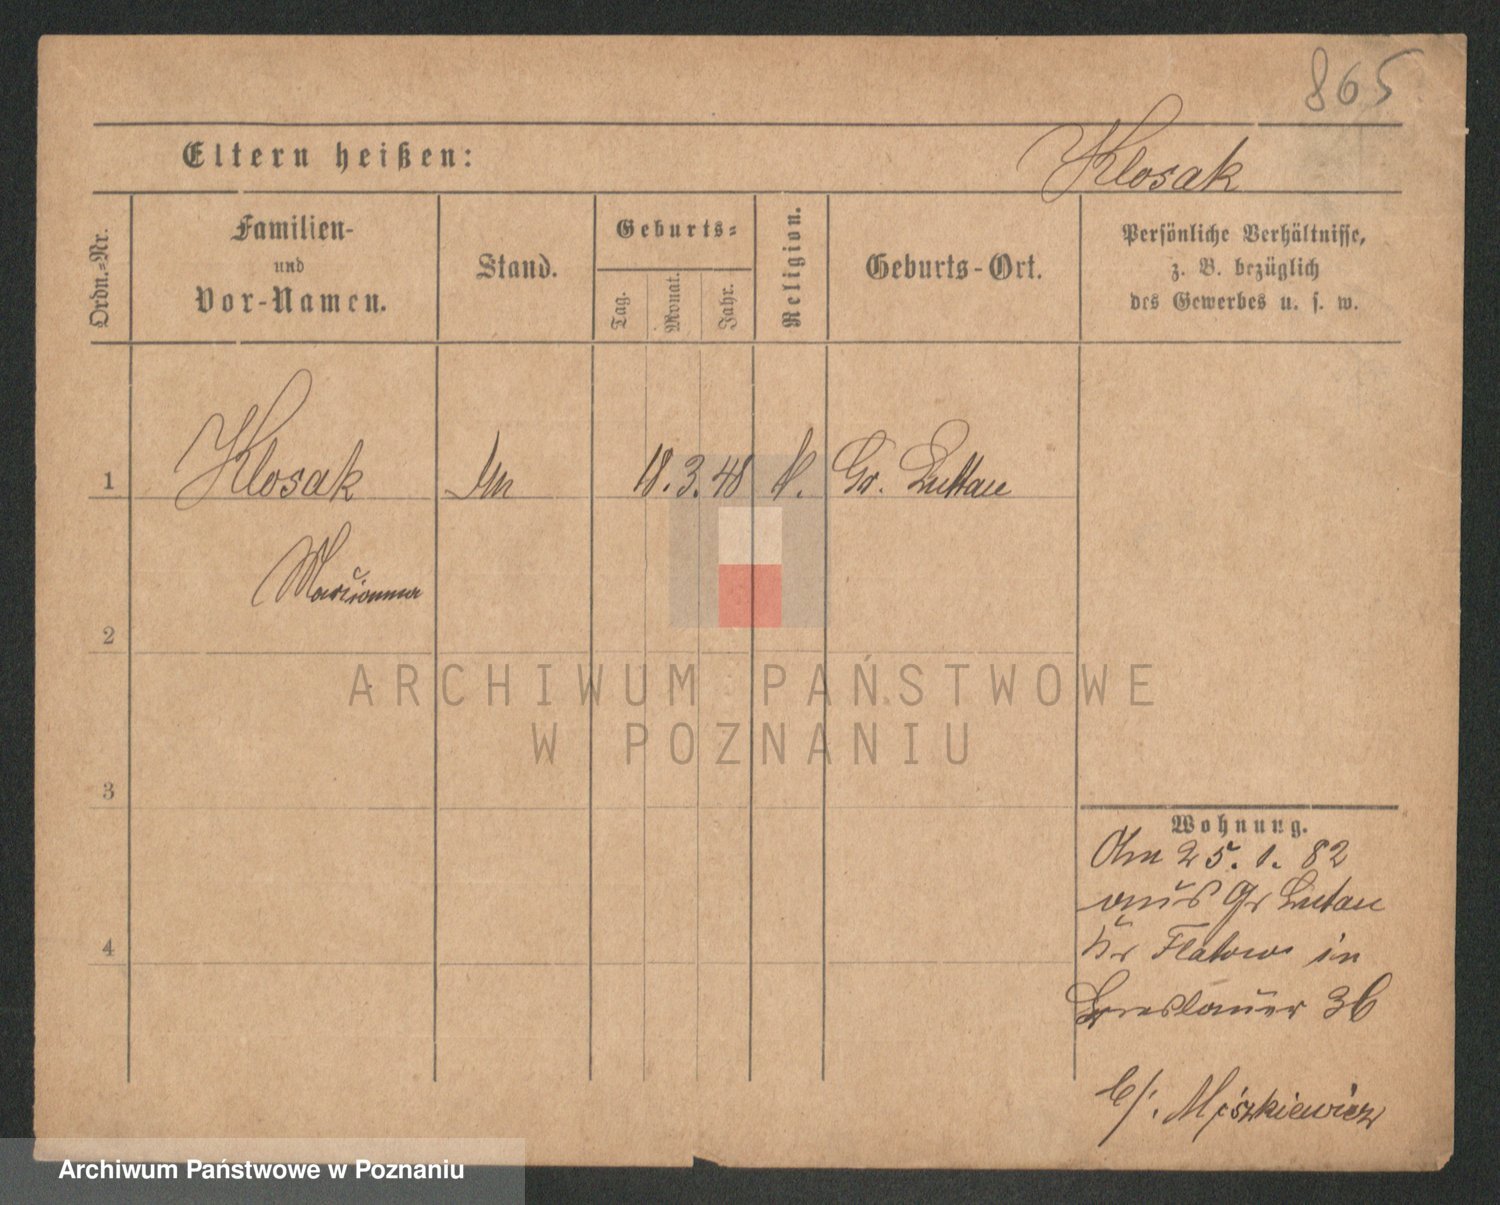 865
Eltern heißen:
Klosak
Ordn.-Nr.
Familien-
und
Vor-Namen.
Stand.
Geburts-
Tag.
Monat.
Jahr.
Religion.
Geburts-Ort.
Persönliche Verhältnisse,
z. B. bezüglich
des Gewerbes u. s. w.
1
Klosak
18. 3. 48
Gr. Luttau
Marianna
2
ARCHIWUM PAŃSTWOWE
W POZNANIU
3
Wohnung.
25. 1. 82
aus Gr Lutau
Kr Flatow in
Breslauer 36
4
b/. Miszkiewicz
Archiwum Państwowe w Poznaniu